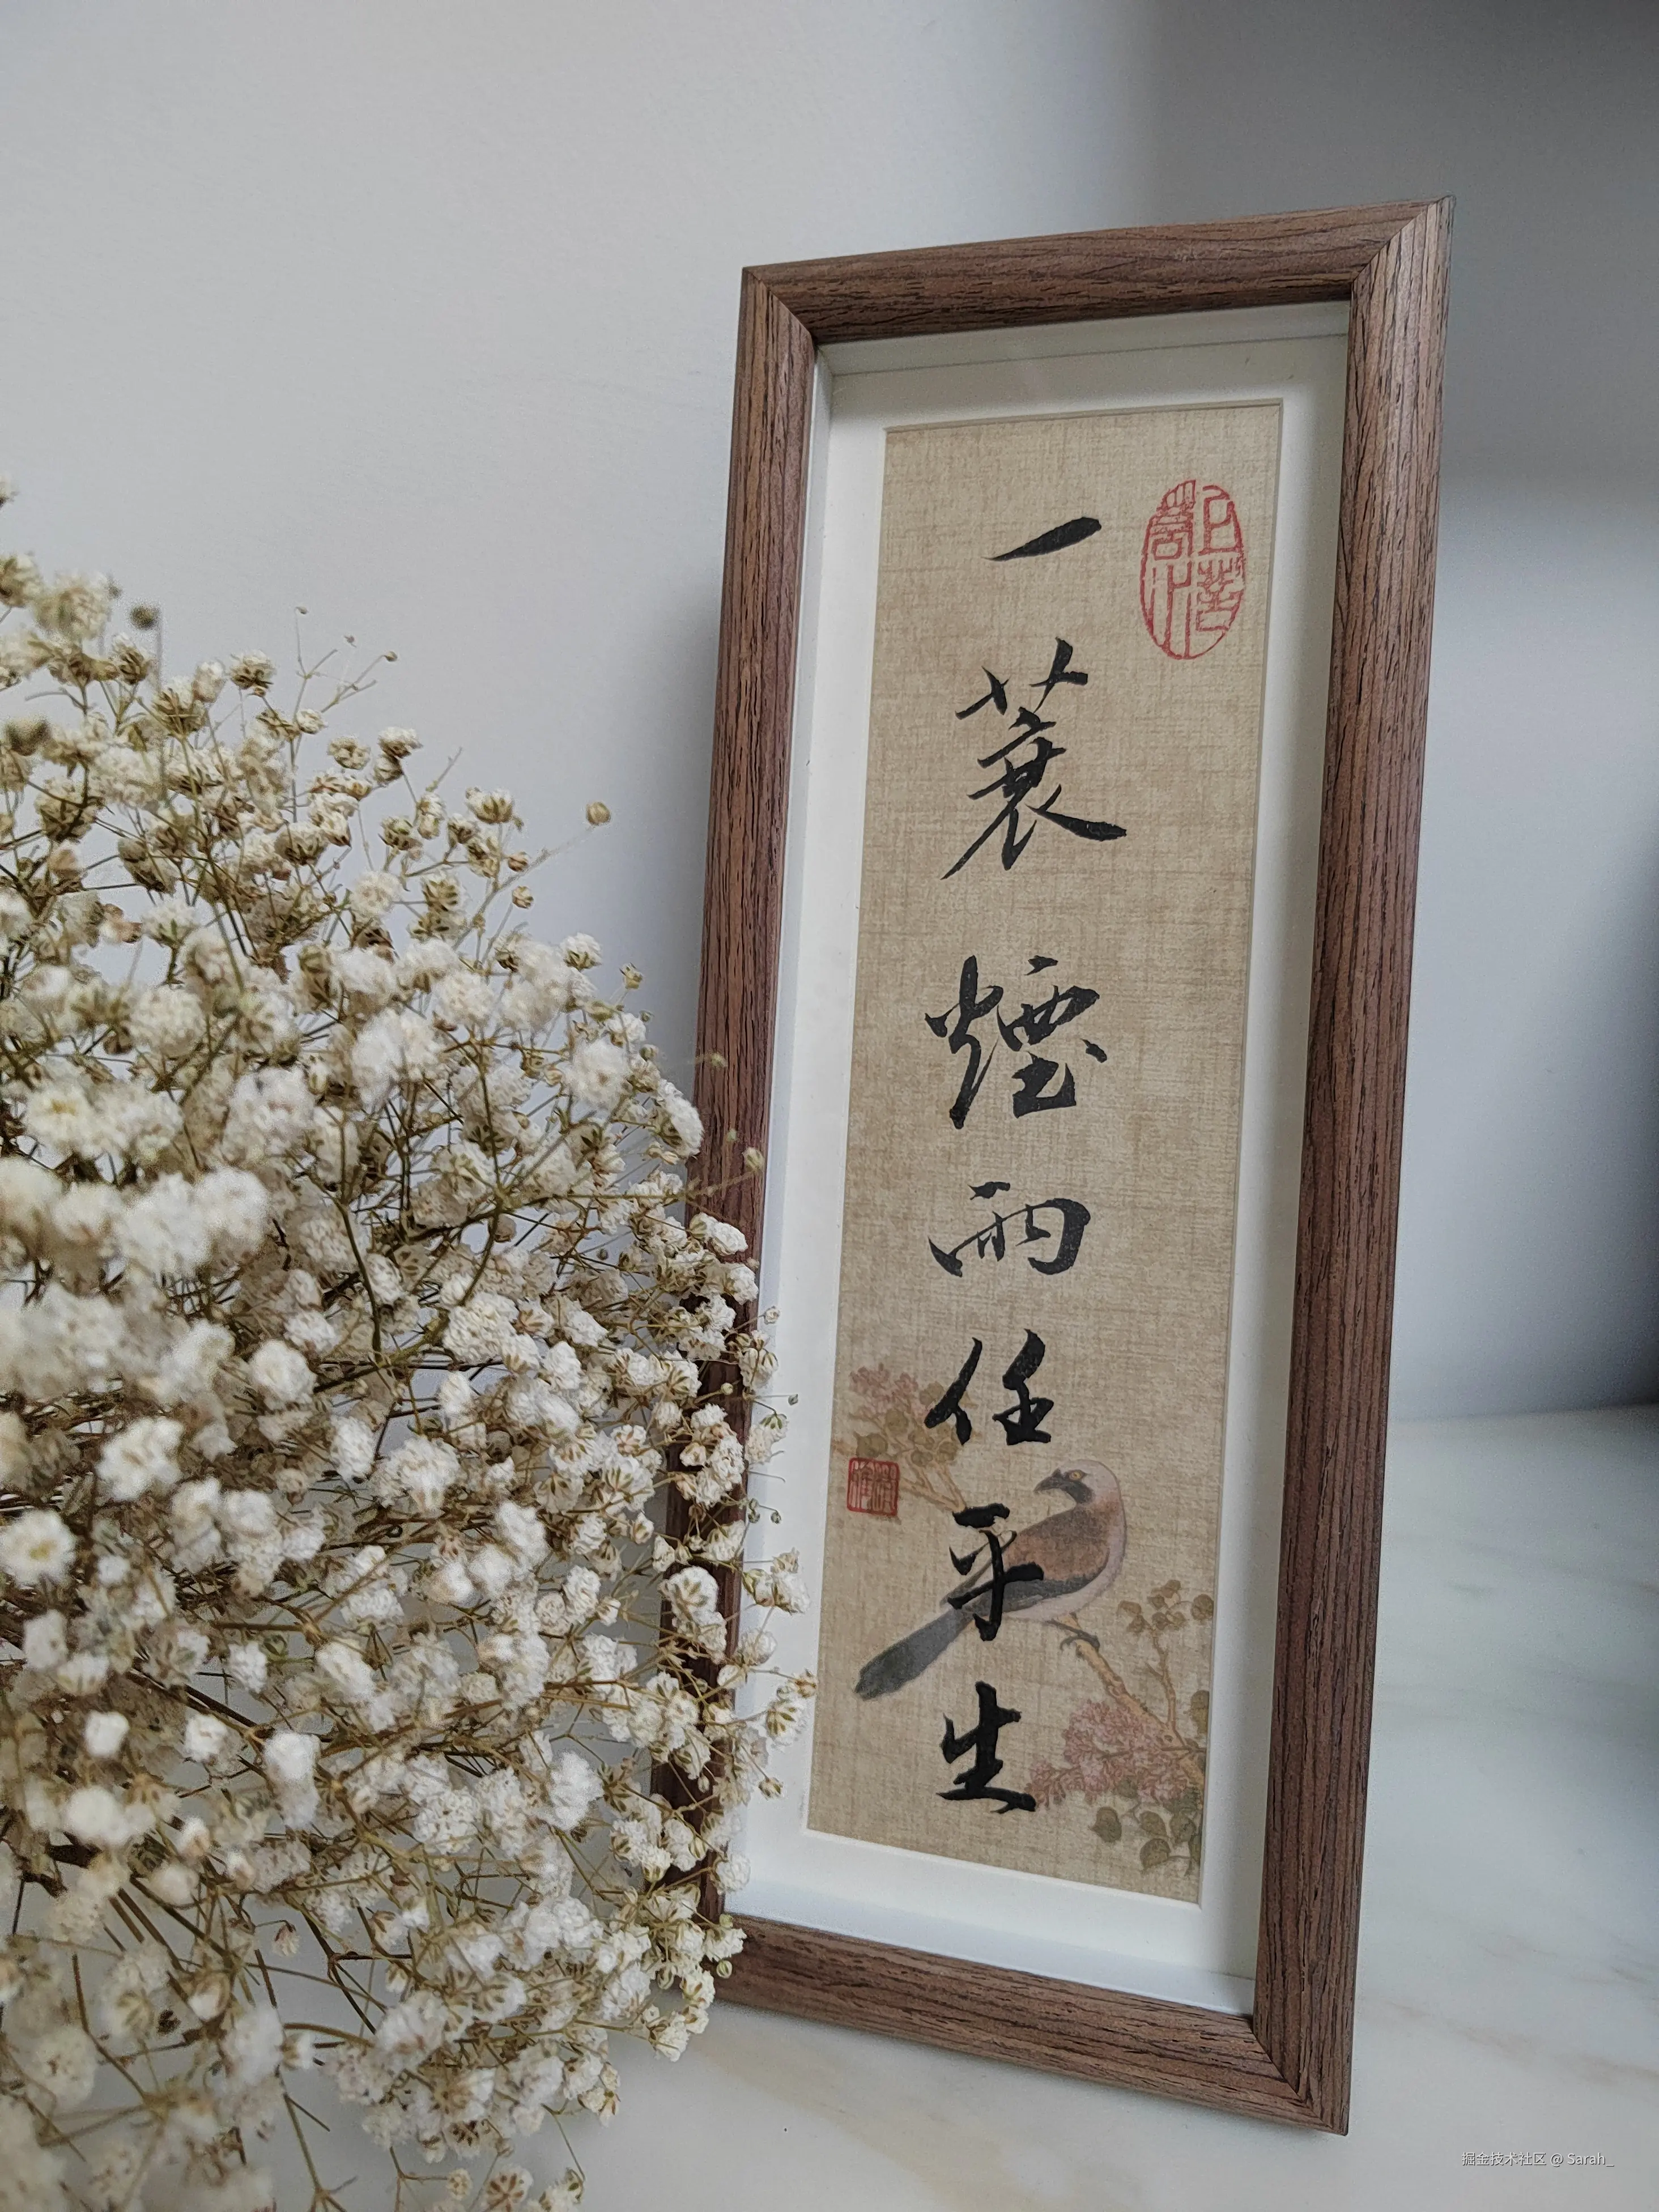 一蓑煙雨任平生
掘金技术社区 @ Sarah_